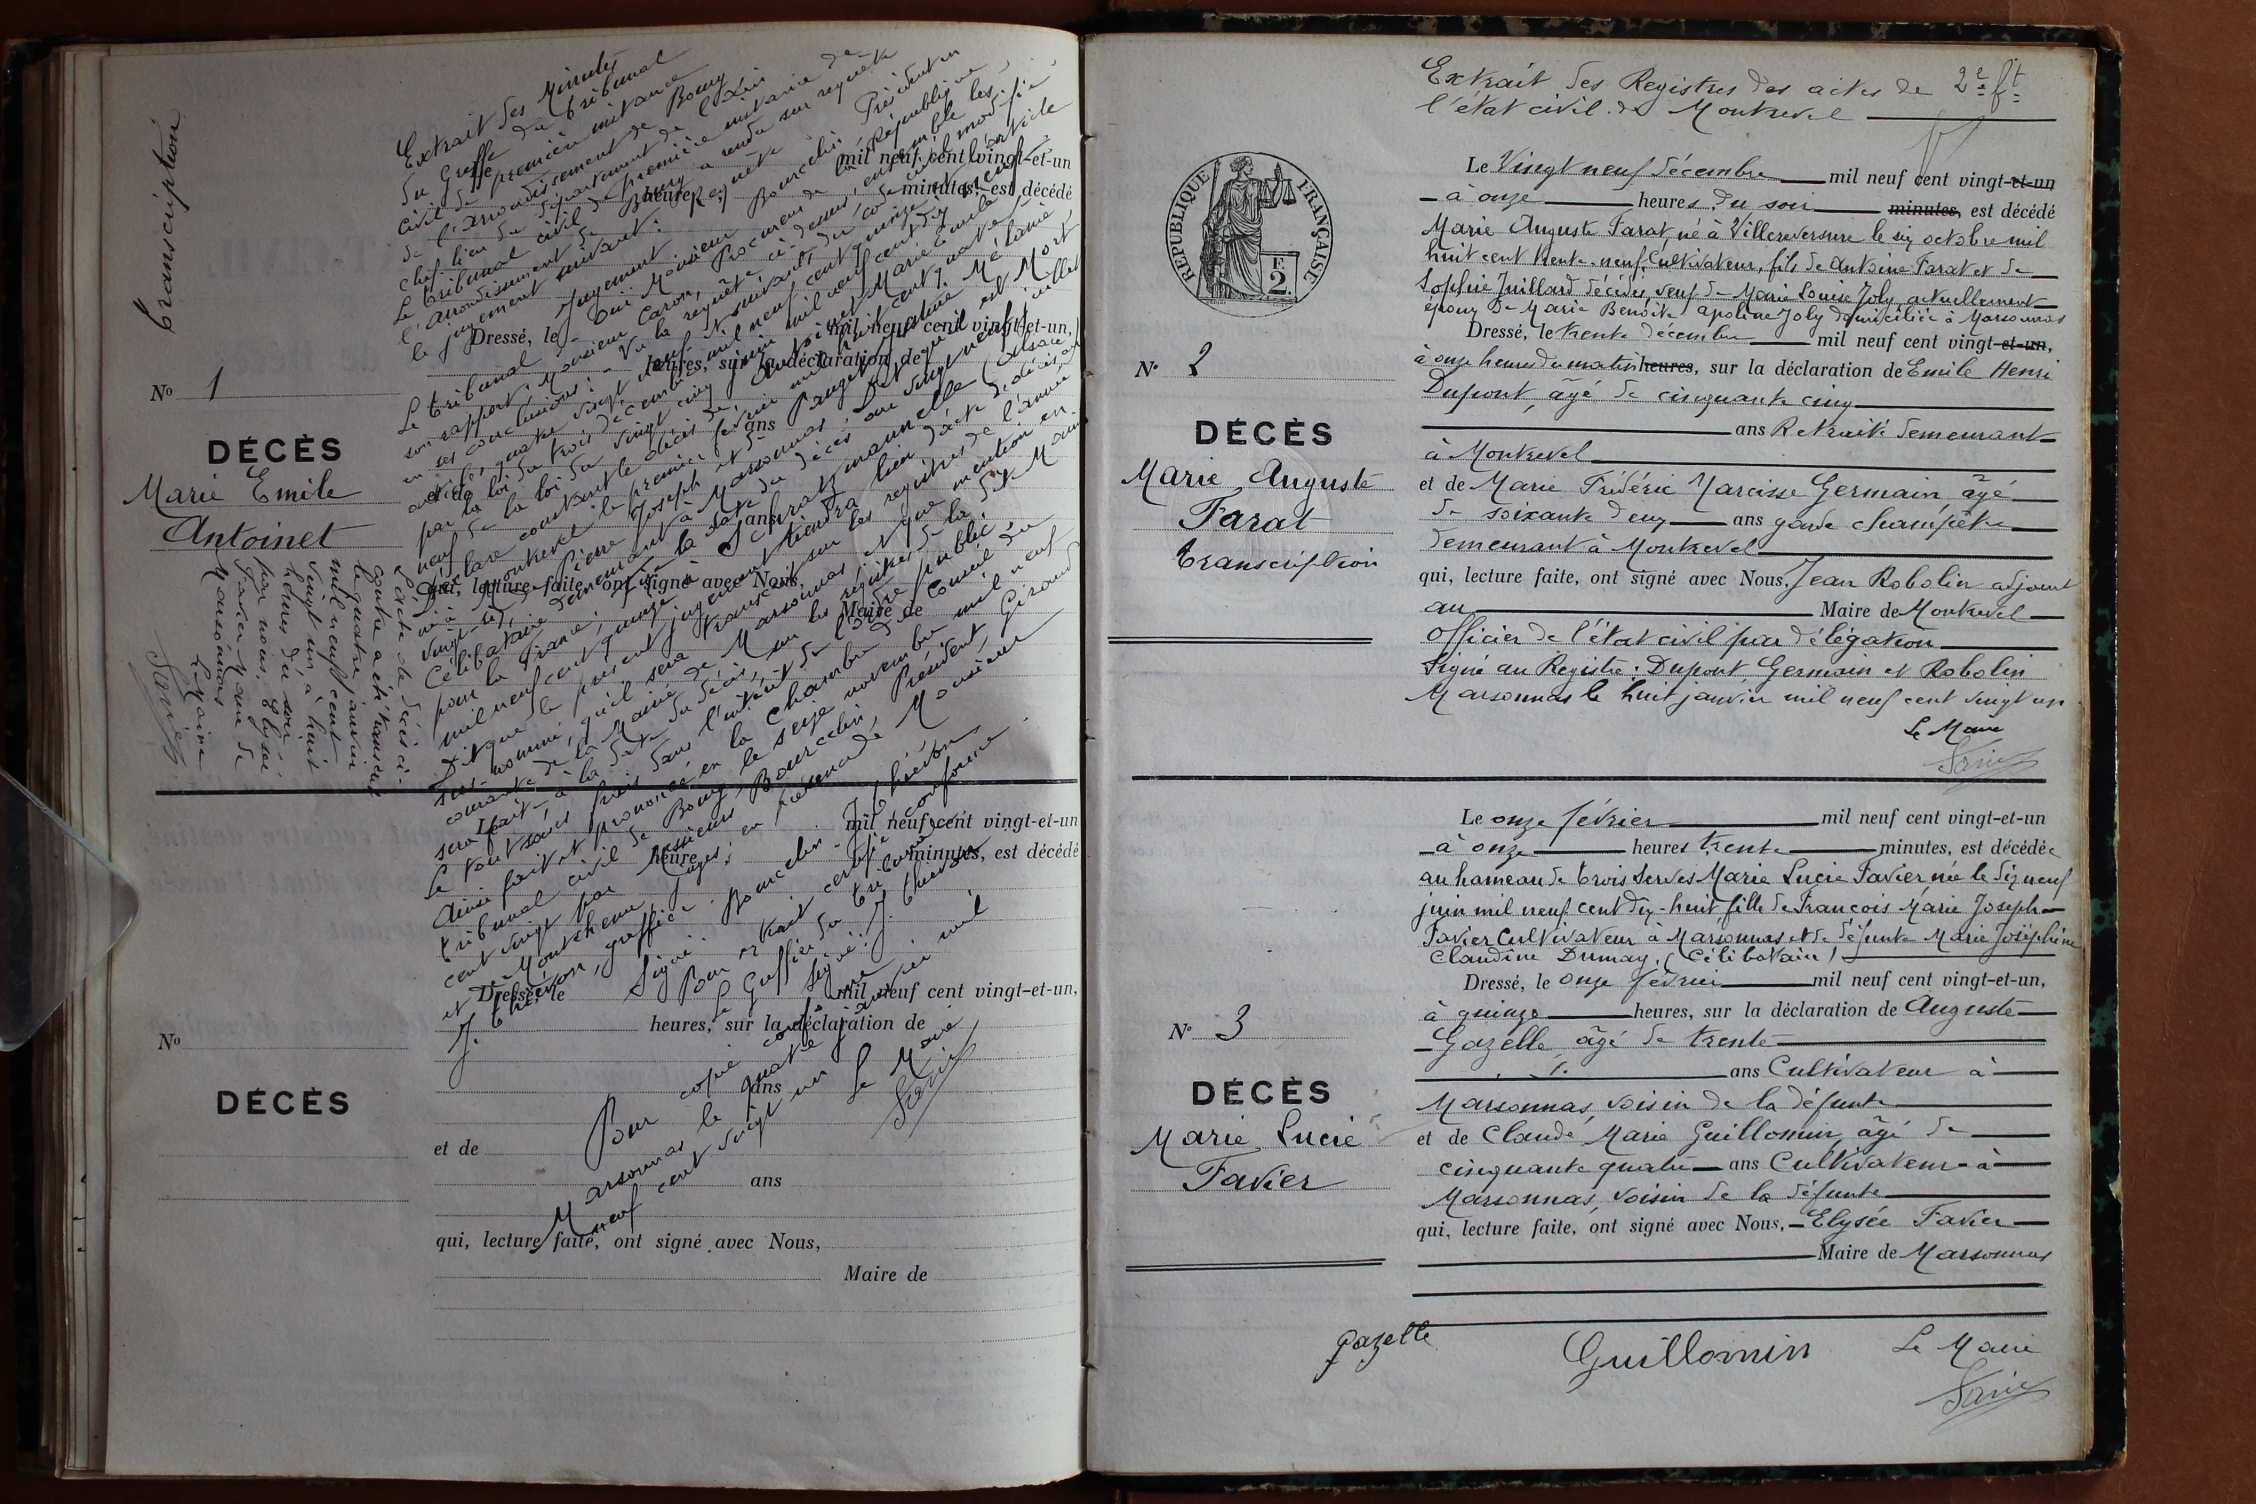 transcription
Extrait des Minutes
du Greffe du tribunal
civil de première instance
de l'arrondissement de Bourg
chef lieu du département de l'Ain
Le tribunal civil de première instance de
l'arrondissement de Bourg a rendu sur requête
le jugement suivant:
Jugement
Requête
Le tribunal, Ouï Monsieur Bourcelin Président en
son rapport, Monsieur Caron, Procureur de la République
en ses conclusions; Vu la requête ci-dessus, ensemble les
articles quatre vingt neuf et suivants du code civil modifié
par la loi du trois décembre mil neuf cent quinze et l'article
neuf de la loi du vingt cinq juin mil neuf cent dix neuf
Déclare constant le décès de Antoinet Marie Emile
né à Montrevel le premier février mil huit cent quatre
vingt Pierre Joseph et de Pauget Josephine Mélanie
Célibataire demeurant à Marsonnas; Dit qu'il est Mort
pour la France; fixe la date du décès au vingt neuf juillet
mil neuf cent quinze à Schratzmannelle (Alsace)
Dit que le présent jugement tiendra lieu d'acte de décès au
sus-nommé, qu'il sera transcrit sur les registres de l'année
courante de la Mairie de Marsonnas et que mention en
sera faite à la date du décès, sur les registres de la dite Mairie
Le tout sans frais dans l'intérêt de l'ordre public
Ainsi fait et prononcé en la chambre du Conseil du
tribunal civil de Bourg, le seize novembre mil neuf
cent vingt par Messieurs Bourcelin, Président, Giraud
et de Montchenu, Juges; en présence de Monsieur
J. Thévenon, greffier
Signé: Bourcelin J. Thévenon
Pour extrait certifié conforme
Le Greffier du tribunal
Signé: J. Thévenon
Pour copie conforme
Marsonnas le quatre janvier mil
neuf cent vingt un
Le Maire
Favier
L'acte de décès ci-
contre a été transcrit
le quatre janvier
mil neuf cent
vingt un à huit
heures du soir
par nous, Elysée
Favier Maire de
Marsonnas
Le Maire
Favier
No 1
DÉCÈS
Marie Emile
Antoinet
mil neuf cent vingt-et-un
heure minutes, est décédé
Dressé, le mil neuf cent vingt-et-un,
heures, sur la déclaration de
ans
et de
ans
qui, lecture faite, ont signé avec Nous,
Maire de
mil neuf cent vingt-et-un
heure minutes, est décédé
Dressé, le mil neuf cent vingt-et-un,
No
heures, sur la déclaration de
DÉCÈS
ans
et de
ans
qui, lecture faite, ont signé avec Nous,
Maire de
Extrait des Registres des actes de 2e ft
l'état civil de Montrevel
RÉPUBLIQUE FRANÇAISE
E
2.
Le Vingt neuf décembre mil neuf cent vingt-et-un
à onze heures du soir minutes, est décédé
Marie Auguste Farat, né à Villereversure le six octobre mil
huit cent trente-neuf, Cultivateur, fils de Antoine Farat et de
Sophie Juillard décédés, veuf de Marie Louise Joly, actuellement
époux De Marie Benoite apoline Joly domiciliée à Marsonnas
Dressé, le trente décembre mil neuf cent vingt-et-un,
No 2
à onze heures du matin heures, sur la déclaration de Emile Henri
Dupont, âgé de cinquante cinq
DÉCÈS
Marie Auguste
Farat
transcription
ans Retraité demeurant
à Montrevel
et de Marie Frédéric Narcisse Germain, âgé
de soixante deux ans garde champêtre
demeurant à Montrevel
qui, lecture faite, ont signé avec Nous, Jean Robolin adjoint
au Maire de Montrevel
Officier de l'état civil par délégation
Signé au Registre: Dupont, Germain et Robolin
Marsonnas le huit janvier mil neuf cent vingt un
Le Maire
Favier
Le onze février mil neuf cent vingt-et-un
à onze heures trente minutes, est décédée
au hameau de trois Serves Marie Lucie Favier née le dix neuf
juin mil neuf cent dix-huit fille de François Marie Joseph
Favier Cultivateur à Marsonnas et de défunte Marie Josephine
Claudine Dumay, (Célibataire)
Dressé, le onze février mil neuf cent vingt-et-un,
No 3
à quinze heures, sur la déclaration de Auguste
Gazelle, âgé de trente
ans Cultivateur à
DÉCÈS
Marie Lucie
Favier
Marsonnas, voisin de la défunte
et de Claude Marie Guillomin, âgé de
cinquante quatre ans Cultivateur à
Marsonnas, voisin de la défunte
qui, lecture faite, ont signé avec Nous, Elysée Favier
Maire de Marsonnas
Gazelle
Guillomin
Le Maire
Favier